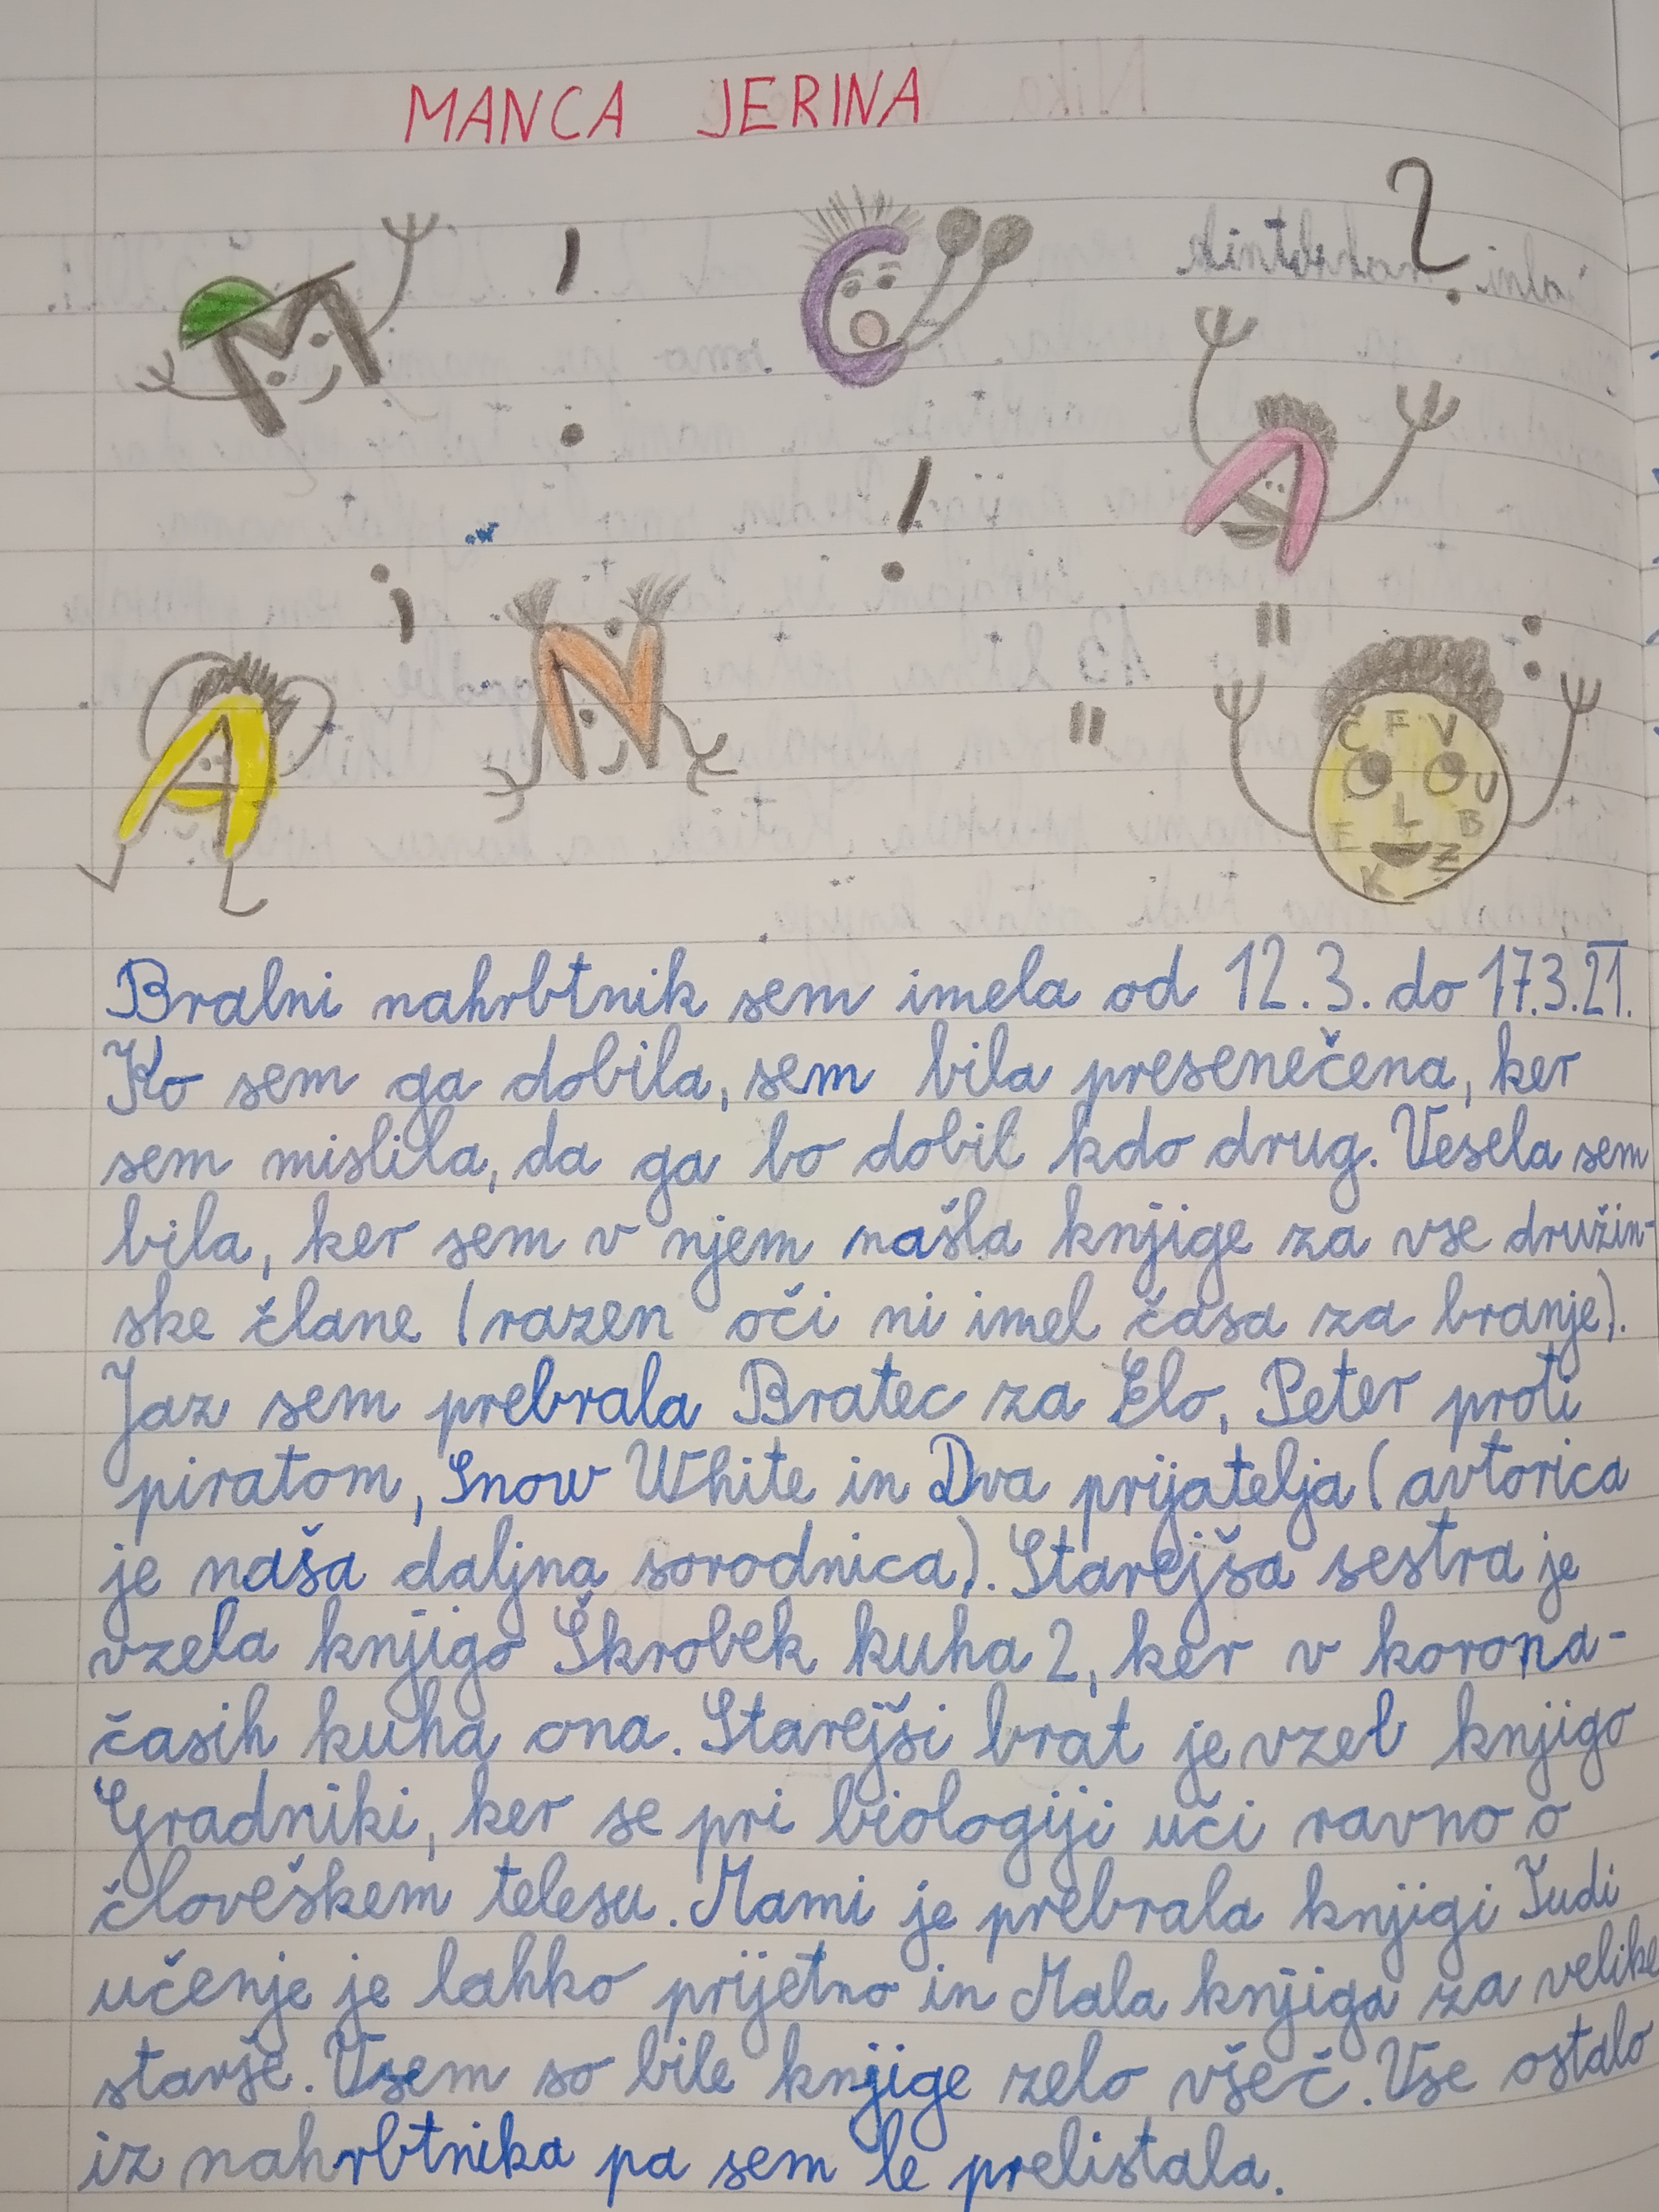 MANCA JERINA
M ! C ? A
A ; N ! " " :
Č F V
U
E L B
K Z
Bralni nahrbtnik sem imela od 12.3. do 17.3.21.
Ko sem ga dobila, sem bila presenečena, ker
sem mislila, da ga bo dobil kdo drug. Vesela sem
bila, ker sem v njem našla knjige za vse družin-
ske člane (razen oči ni imel časa za branje).
Jaz sem prebrala Bratec za Elo, Peter proti
piratom, Snow White in Dva prijatelja (avtorica
je naša daljna sorodnica). Starejša sestra je
vzela knjigo Škrobek kuha 2, ker v korona-
časih kuha ona. Starejši brat je vzel knjigo
Gradniki, ker se pri biologiji uči ravno o
človeškem telesu. Mami je prebrala knjigi Tudi
učenje je lahko prijetno in Mala knjiga za velike
starše. Vsem so bile knjige zelo všeč. Vse ostalo
iz nahrbtnika pa sem le prelistala.